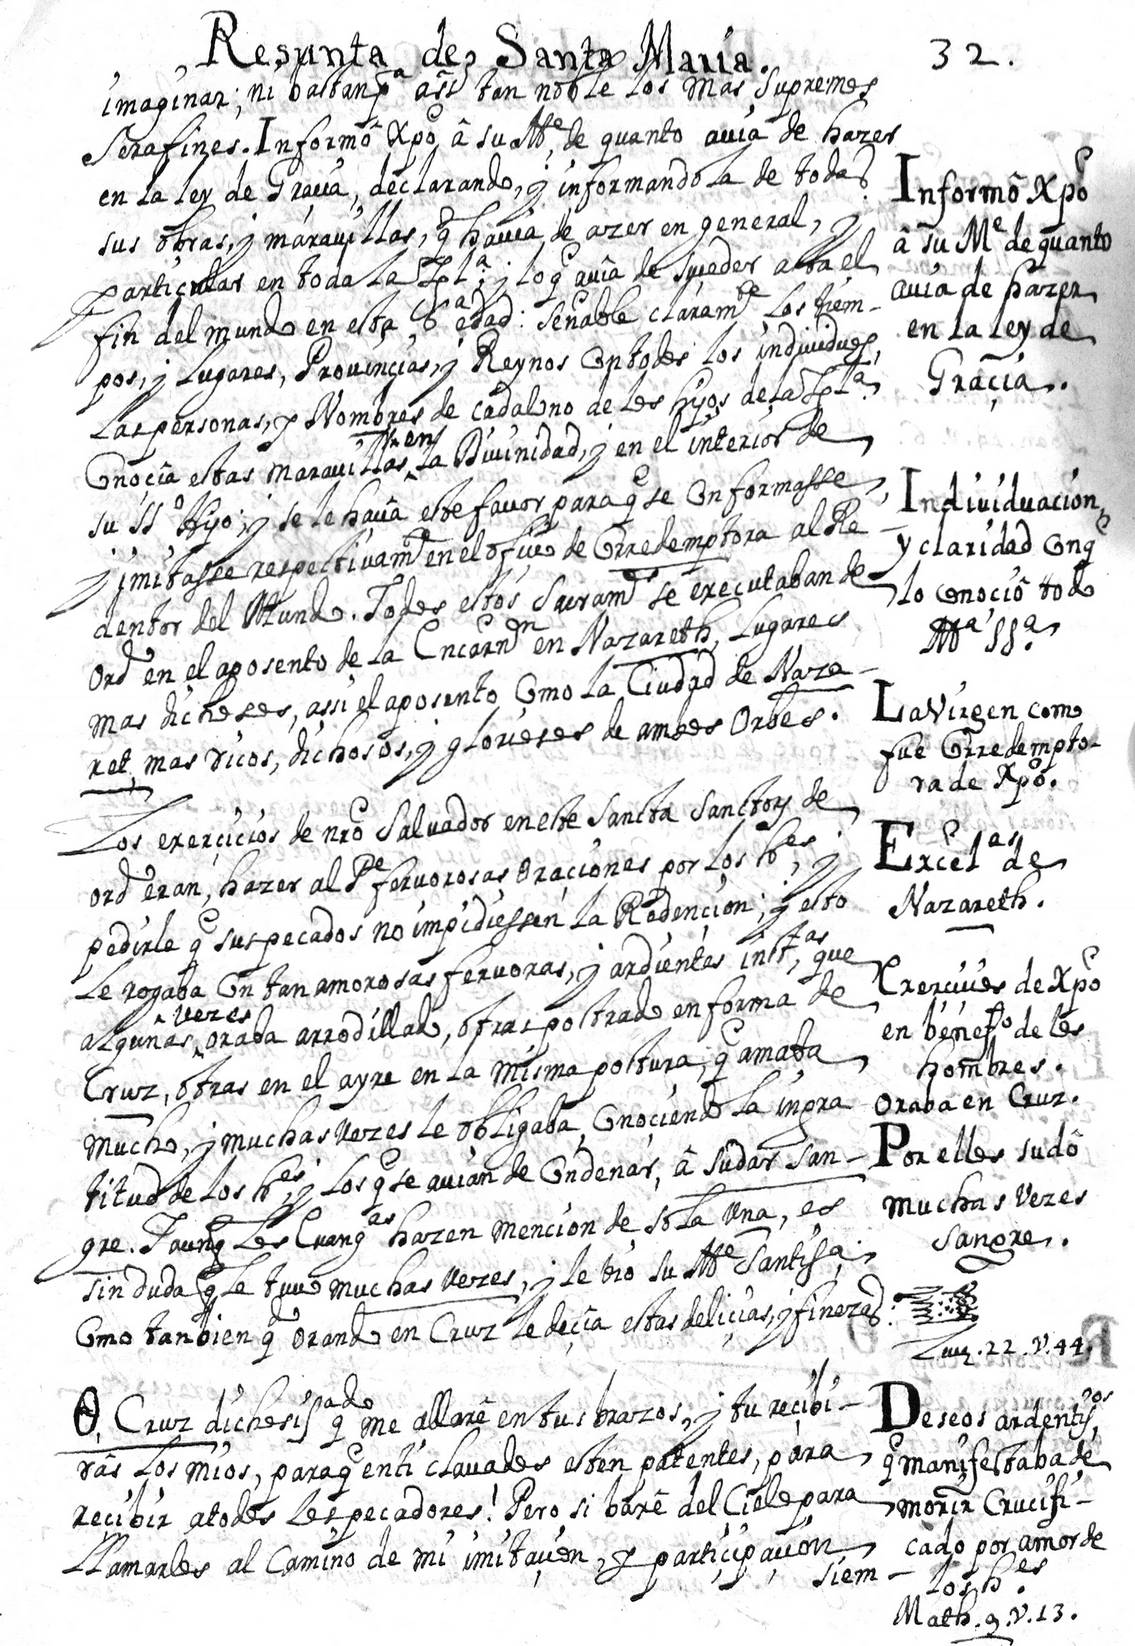 Resunta de Santa Maria.
32.
imaginar; ni baltan pa. asi tan noble los mas Supremos
Serafines. Informô Xpo. â su Me. de quanto avia de hazer
en la ley de Gracia, declarando, y informandola de todas
sus obras, y maravillas, q̃ havia de azer en general, y
particular en toda la Igla.; y lo q̃ avia de suceder asta el
fin del mundo en esta 6a edad: Señalole claramte. los tiem-
pos, y lugares, Provinçias, y Reynos con todos los individuos,
las personas, y Nombres de cada Uno de los hijos de la Igla.
Conocia estas maravillas en la Divinidad, y en el interior de
su SSo. Hijo; y se le havia este favor para q̃ se conformasse
y imitasse respectivamte. en el oficio de Corredemptora al Re-
dentor del Mundo. Todos estos Sacramtos. se executaban de
Ordo. en el aposento de la Encarnon. en Nazareth, lugares
mas dichosos, assi el aposento como la Ciudad de Naza-
ret, mas ricos, dichosos, y gloriosos de ambos Orbes.
Los exerçicios de nro. Salvador en este Sancta Sanctorum de
ordo. eran, hazer al Pe. fervorosas oraciones por los hes.; y
pedirle q̃ sus pecados no impidiessen la Redencion; y esto
le rogaba con tan amorosas fervoras, y ardientes instas. que
algunas vezes oraba arrodillado, otras postrado en forma de
Cruz, otras en el ayre en la misma postura; q̃ amaba
mucho, y muchas vezes le obligaba, conociendo la ingra
titud de los hes. y los q̃ se avian de condenar, â sudar san-
gre. Y aunq̃ los Evangas. hazen mencion de sola Una, es
sin duda q̃ le tuvo muchas vezes, y le vio su Me. Santissa.;
Como tanbien q̃ Orando en Cruz le decia estas deliçias, y finezas:
O, Cruz dichosissa. quando me allarê en tus brazos, y tu recibi-
râs los mios, para q̃ en ti clavados esten patentes, para
recibir a todos los pecadores! Pero si baxê del Cielo para
llamarlos al Camino de mi imitaçion, y partiçipaçion,
siem-
Informô Xpo.
â su Me. de quanto
avia de hazer
en la ley de
Graçia.
Individuacion,
y claridad con q̃
lo conociô todo
Ma. SSa.
La Virgen como
fue Corredempto-
ra de Xpo.
Excelas. de
Nazareth.
Exercicios de Xpo
en benefo. de los
hombres.
Oraba en Cruz.
Por ellos sudô
muchas vezes
sangre.
Luc. 22. v. 44.
Deseos ardentissos.
q̃ manifestaba de
morir Crucifi-
cado por amor de
los hes.
Math. 9. v. 13.